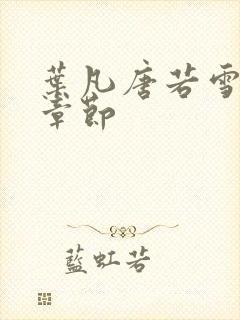 葉凡唐若雪
章節
藍虹若